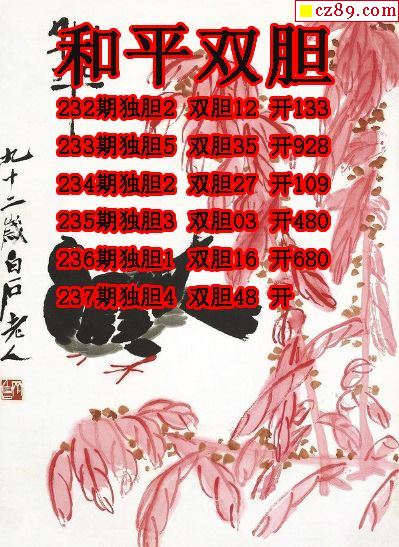 cz89.com
和平双胆
232期独胆2 双胆12 开133
233期独胆5 双胆35 开928
234期独胆2 双胆27 开109
235期独胆3 双胆03 开480
236期独胆1 双胆16 开680
237期独胆4 双胆48 开
九十二岁白石老人